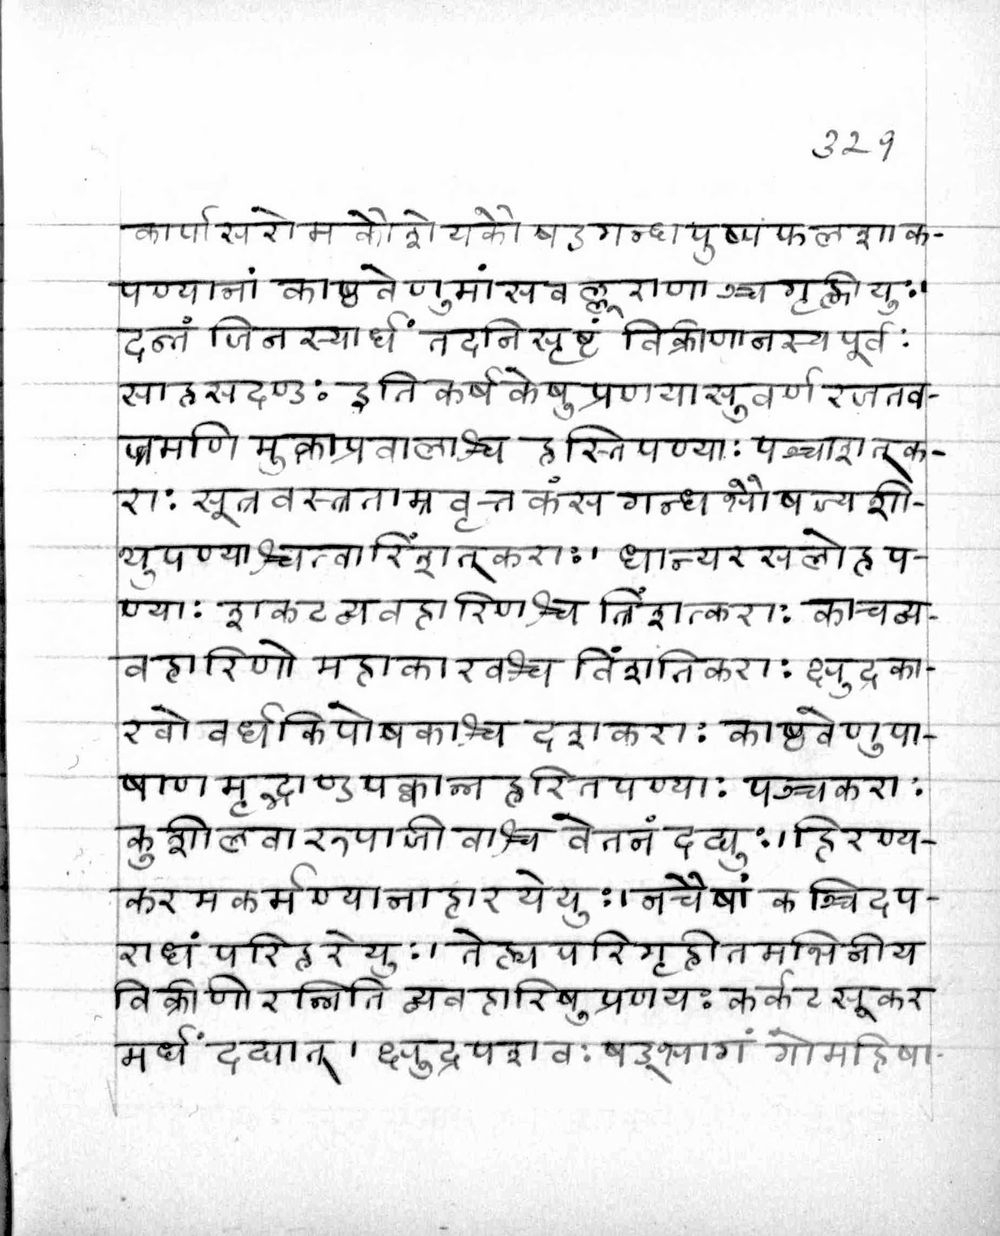 ३२९
कार्पासरोमकौशेयकौषडगन्धपुष्पफलशाक-
पण्यानां काष्ठवेणुमांसवल्लूराणाञ्च गृह्णीयुः।
दन्तंजिनस्यार्धं तदनिसृष्टं विक्रीणानस्य पूर्वः
साहसदण्डः इति कर्षकेषु प्रणया सुवर्णरजतव-
ज्रमणिमुक्ताप्रवालाश्च हस्तिपण्याः पञ्चाशत्क-
राः सूत्रवस्त्रताम्रवृत्तकंसगन्धभैषज्यशी-
थुपण्याश्चत्वारिंशत्कराः। धान्यरसलोहप-
ण्याः शकटव्यवहारिणश्च त्रिंशत्कराः काचव्य-
वहारिणो महाकारवश्च विंशतिकराः क्षुद्रका-
रवो वर्धकिपोषकाश्च दशकराः काष्ठवेणुपा-
षाणमृद्भाण्डपक्वान्नहरितपण्याः पञ्चकराः
कुशीलवा रूपाजीवाश्च वेतनं दद्युः। हिरण्य-
करमकर्मण्यानाहारयेयुः। नचैषां कञ्चिदप-
राधं परिहरेयुः। तेह्यपरिगृहीतमभिनीय
विक्रीणीरन्निति व्यवहारिषु प्रणयः कर्कटसूकर
मर्धं दद्यात्। क्षुद्रपशवः षड्भागं गोमहिषा-